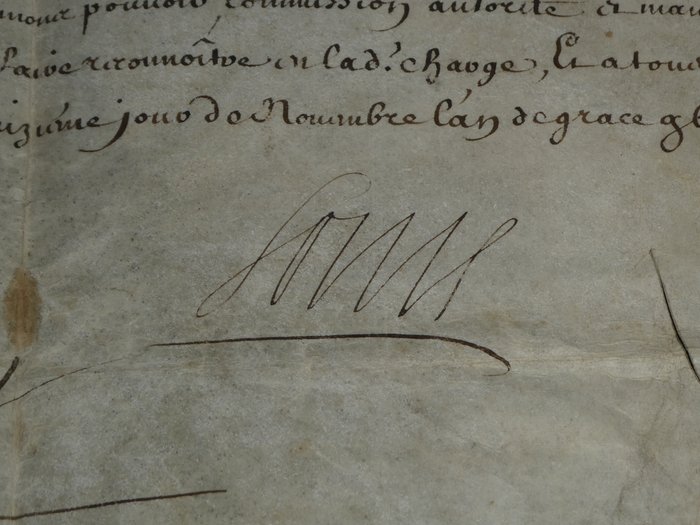 pouvoir, commission autorité et man
faire reconnoître en lad.e charge, Et a tous
jour de Novembre l'an de grace
Louis